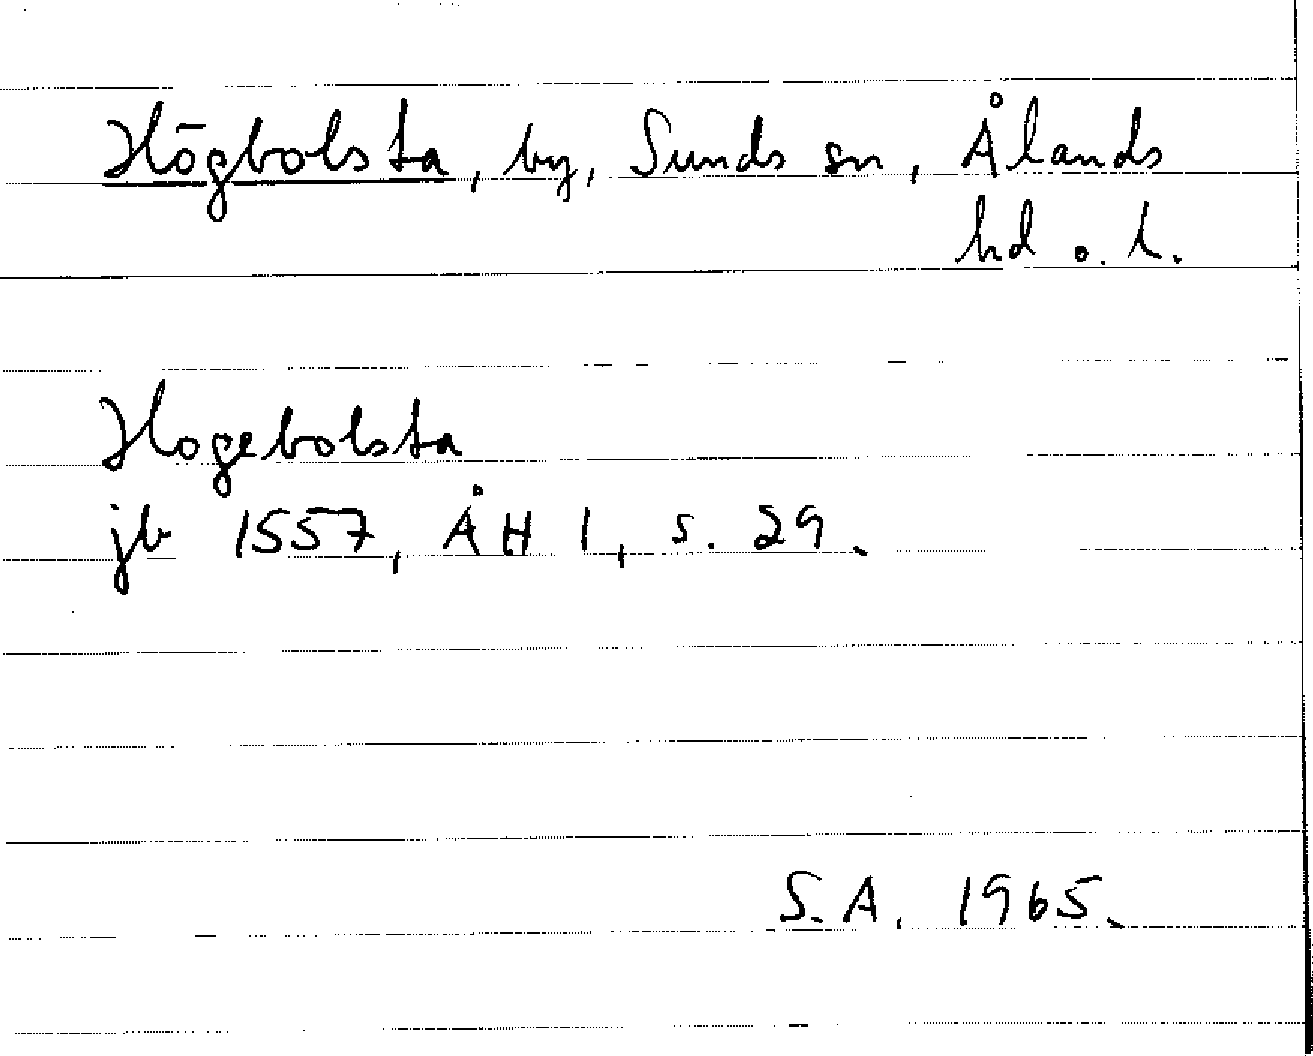 Högbolsta, by, Sunds sn, Ålands
hd o. l.
Hogebolsta
jb 1557, ÅH 1, s. 29.
S.A. 1965.